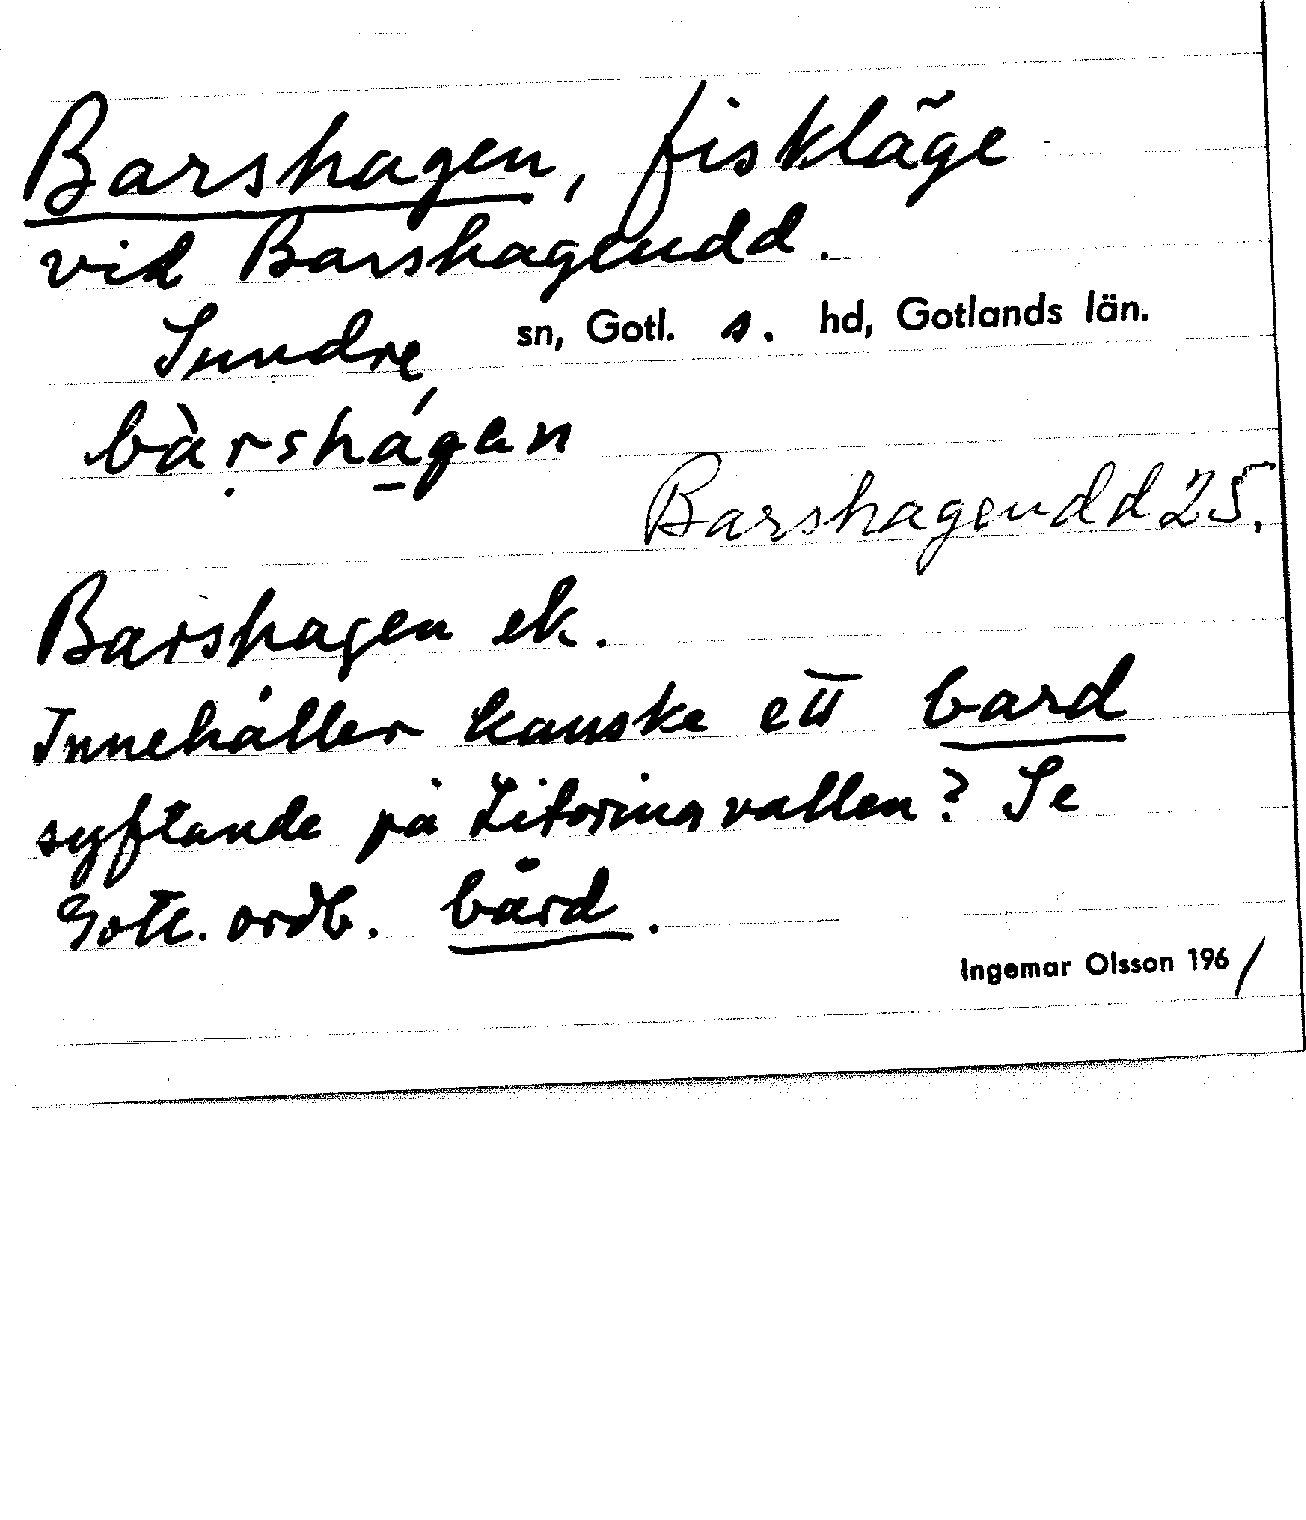 Barshagen, fiskläge
vid Barshageudd.
Sundre sn, Gotl. s. hd, Gotlands län.
bàrshágan
Barshagendd 25.
Barshagen ek.
Innehåller kanske ett bard
syftande på Litorinavallen? Se
Gotl. ordb. bård.
Ingemar Olsson 1961